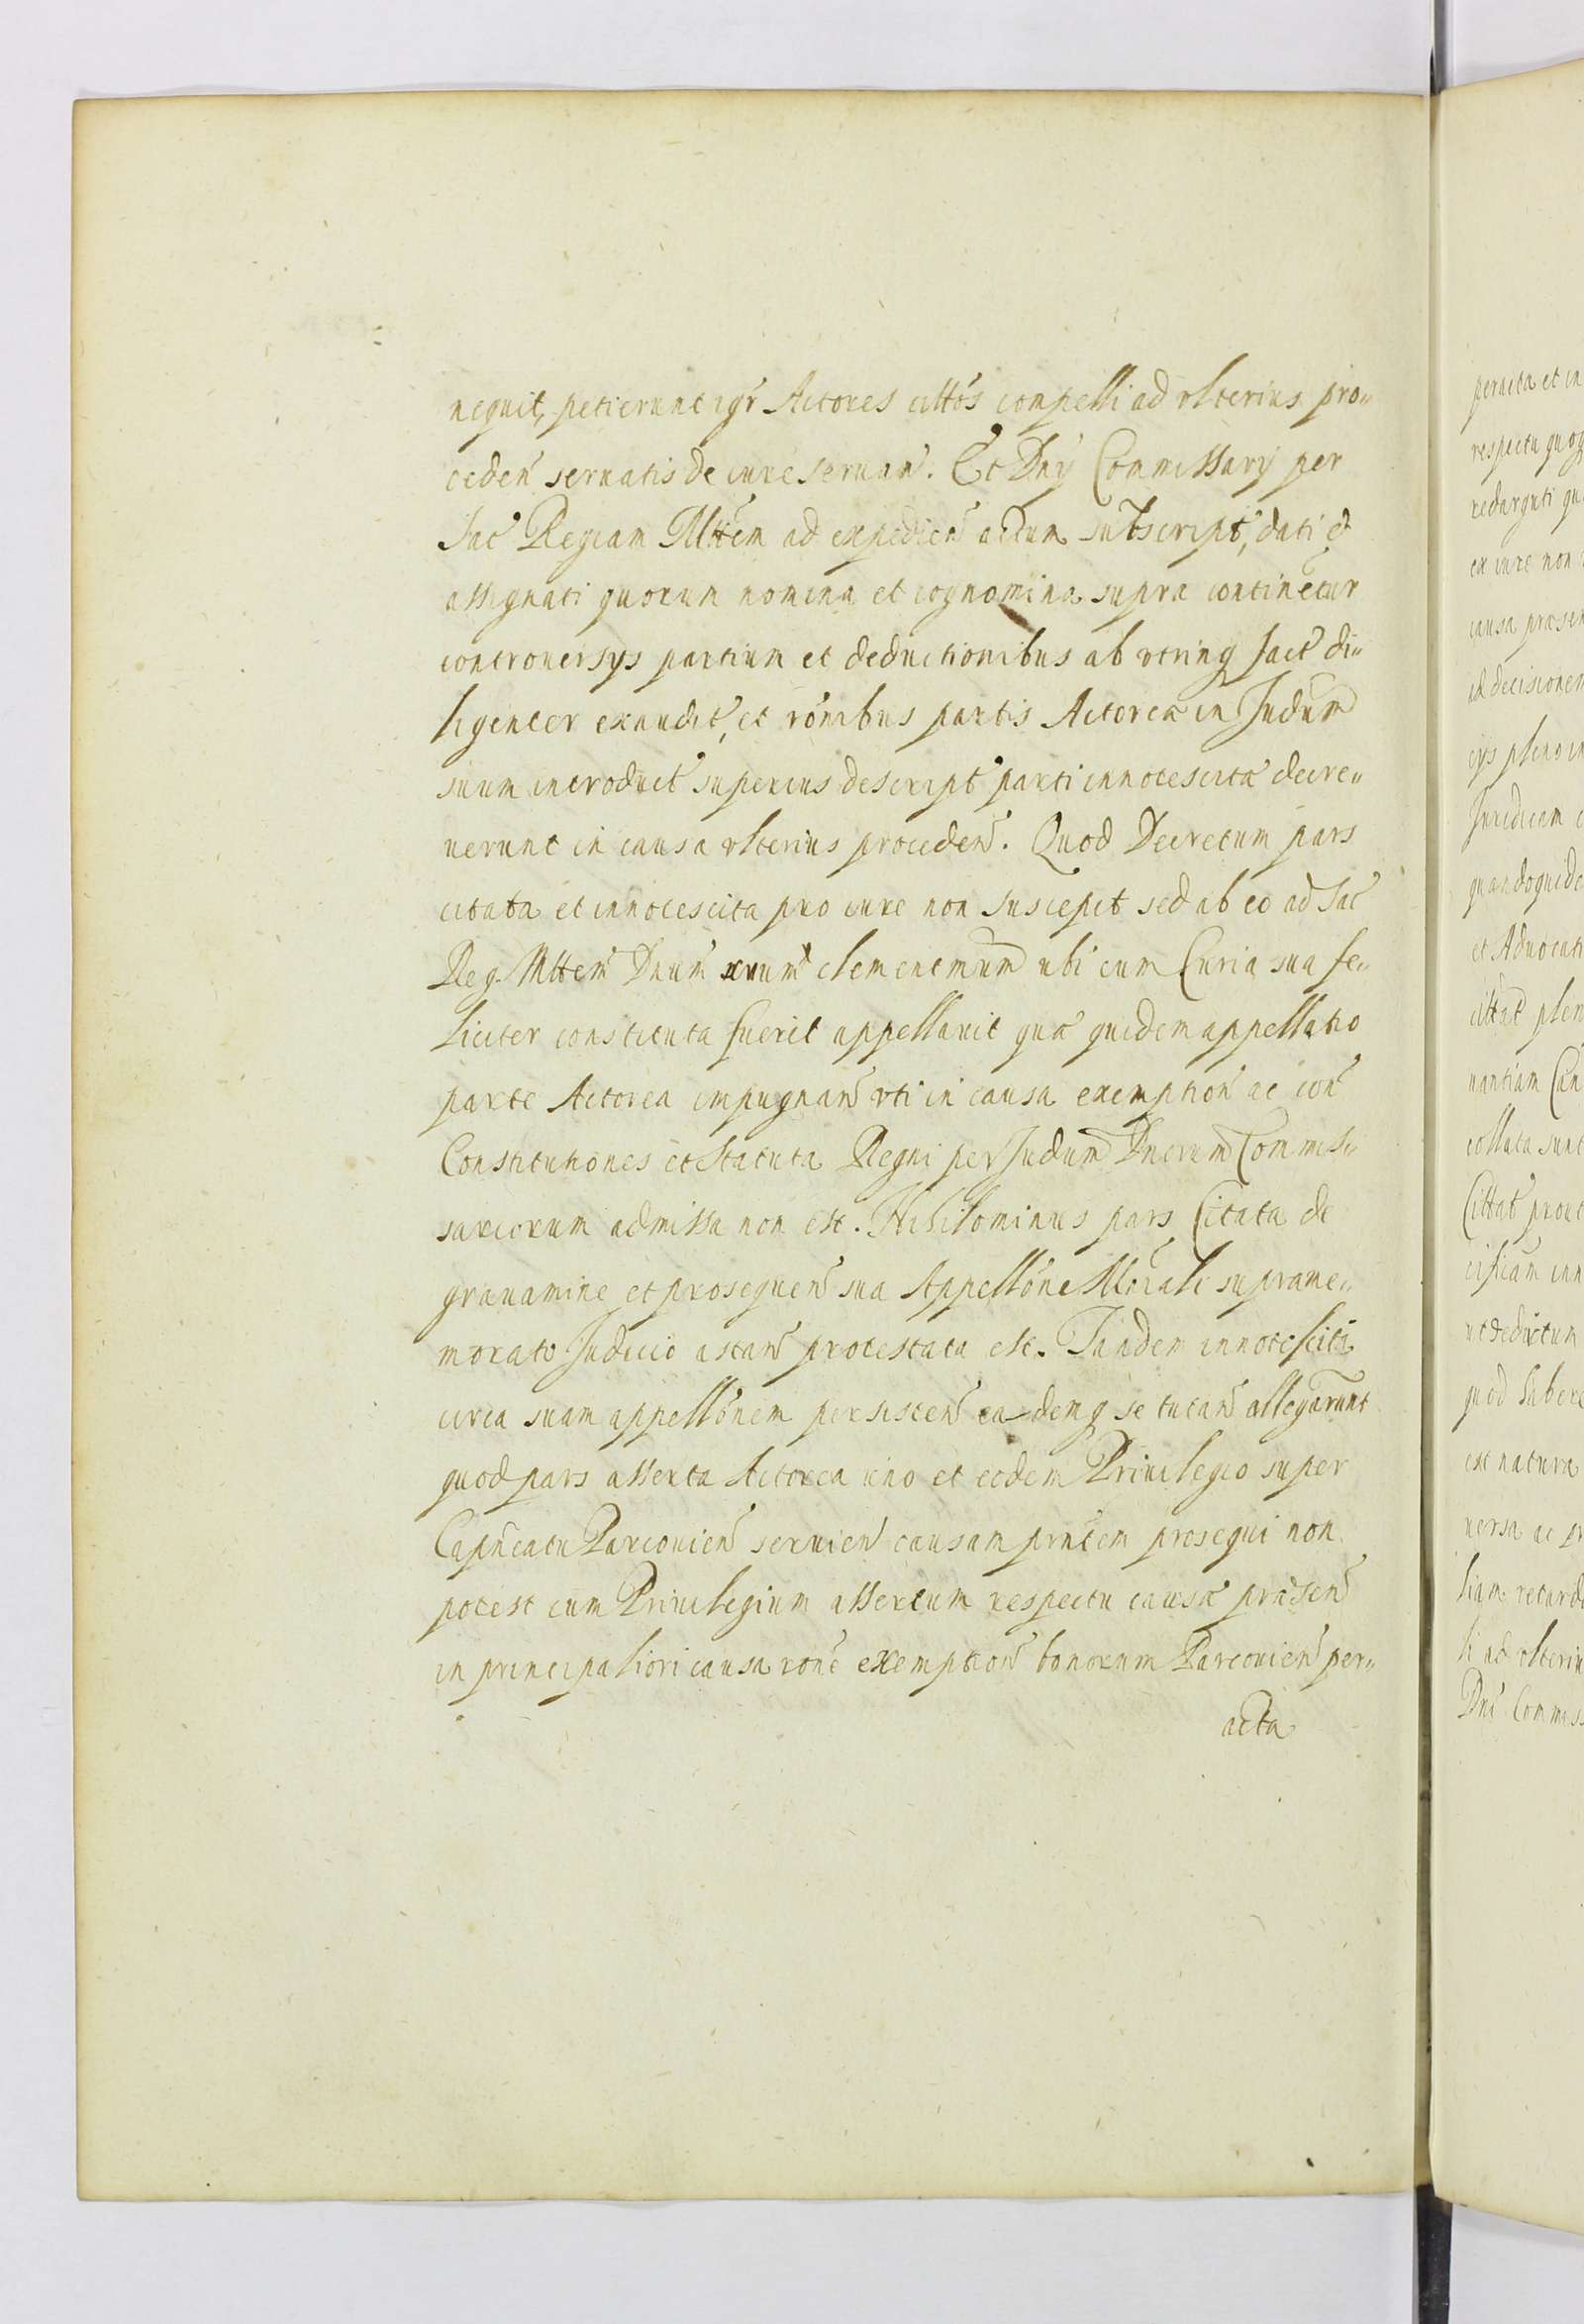 nequit, petierunt igr̃ Actores cittõs compelli ad vlterius pro„
ceden̄ seruatis de iure seruan̄. Et Dnĩ Commissary per
Sac̃ Regiam Mttem ad expedien̄ actum subscript, dati et
assignati quorum nomina et cognomina supra continẽtur
controuersys partium et deductionibus ab vtrinq fact̃ di„
ligenter exaudit̃, et rõnibus partis Actoreæ in Judum̃
suum introduct̃ superius descript̃ parti innotescitæ decre„
uerunt in causa vlterius proceden̄. Quod Decretum pars
citata et innotescita pro iure non suscepit sed ab eo ad Sac̃
Reg. Mttem Dnum̃ clementmum̃ ubi cum Curia sua fe„
liciter constituta fuerit appellauit quæ quidem appellatio
parte Actorea impugnan̄ vti in causa exemption̄ ac con̄
Constitutiones et Statuta Regni per Judum̃ Dnorum̃ Commis„
sariorum admissa non est. Nihilominus pars Citata de
grauamine et prosequen̄ sua Appellõne suprame„
morato Judicio astan̄ protestata est. Tandem innotesciti
circa suam appellõnem persisten̄ eademq se tutan̄ allegarunt
quod pars asserta Actorea uno et eodem Priuilegio super
Capñeatu Parcouien̄ seruien̄ causam pñtem prosequi non
potest cum Priuilegium assertum respectu causæ præsen̄
in principaliori causa rõne exemption̄ bonorum Parcouien̄ per„
acta
peracta et in
respectu quoq
redarguti qu
ex iure non
causa præsen
decisionem
cys pleno in
Juridicam
quandoquide
et Aduocati
cittat̃ plen
nantiam Can
collata sunt
Cittat̃ prout
inn
ut deductum
quod habere
est natura
uersa ac pr
liam retard
li ad vlteriu
Dnĩ Commiss